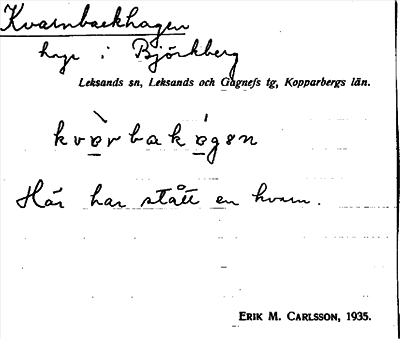 Kvarnbackhagen
hage i Björkberg
Leksands sn, Leksands och Gagnefs tg, Kopparbergs län.
kvɒrbakɒgən
Här har stått en kvarn.
ERIK M. CARLSSON, 1935.